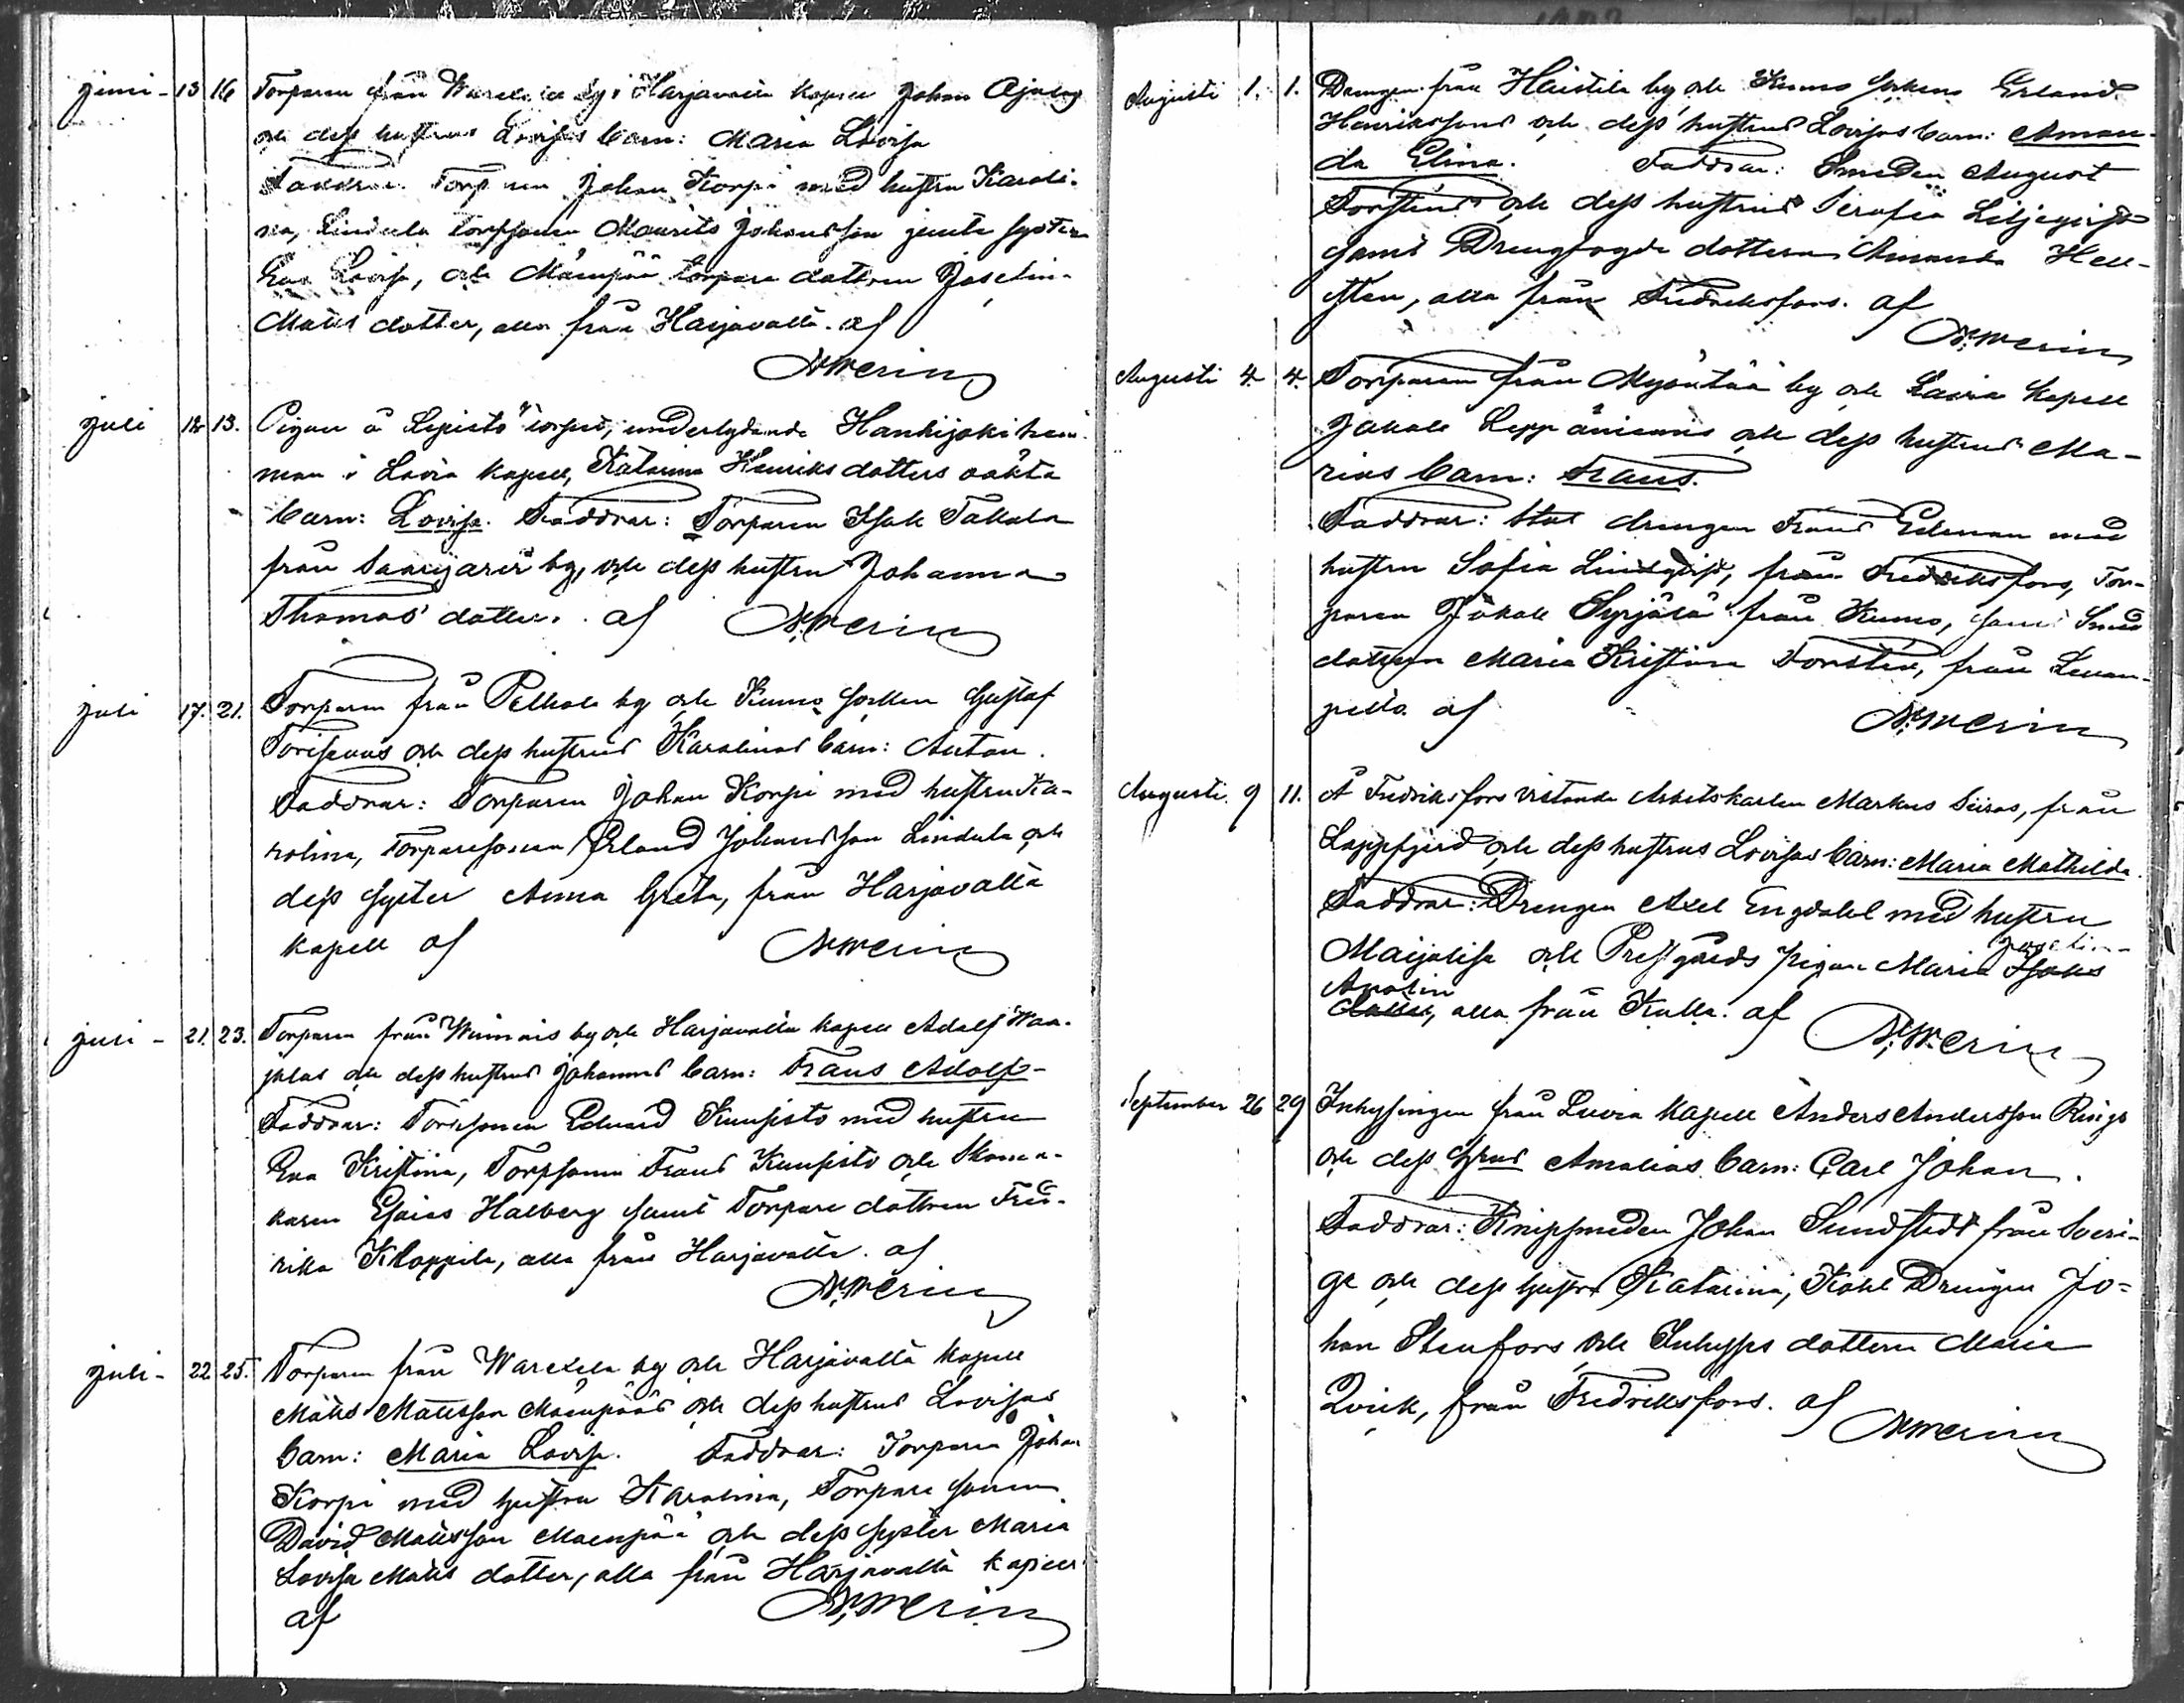 juni - 13 16 Torparen från by i Harjavalta kapell Johan
och dess hustrus Lovisas barn: Maria Lovisa
Faddrar: Torparen Johan Korpi med hustru Karoli-
na, Lindula torpsonen Maurits Johansson jemte syster
Eva Lovisa, och Mäenpää torpare dottren Josefin-
Matts dotter, alla från Harjavalta. af
N. Merin
juli 12 13. Pigan å Lepistö torpet, underlydande Hankijoki hem-
man i Lavia kapell, Katarina Henriks dotters oäkta
barn: Lovisa. Faddrar: Torparen Isak Takala
från Saarijärvi by, och dess hustru Johanna
Thomas dotter. af N. Merin
juli 17. 21. Torparen från Pelkola by och Kumo socken Gustaf
och dess hustrus Karolinas barn: Anton.
Faddrar: Torparen Johan Korpi med hustru Ka-
rolina, torparesonen Erland Johansson Lindula och
dess syster Anna Greta, från Harjavalta
kapell af N. Merin
juli - 21. 23. Torparen från Winnais by och Harjavalta kapell Adolf Waa-
jalas och dess hustrus Johannas barn: Frans Adolf-
Faddrar: Torpsonen Eduard Kuusisto med hustru
Eva Kristina, Torpsonen Frans Kuusisto och Skoma-
karen Esaias Halberg samt Torpare dottren Fred-
rika Kloppila, alla från Harjavalta. af
N. Merin
juli - 22 25. Torparen från by och Harjavalta kapell
Matts Mattsson Mäenpääs och dess hustrus Lovisas
barn: Maria Lovisa. Faddrar: Torparen Johan
Korpi med hustru Karolina, Torpare sonen
David Mattsson Mäenpää och dess syster Maria
Lovisa Matts dotter, alla från Harjavalta kapell
af N. Merin
Augusti 1. 1. Drengen från Haistila by och Kumo sockens Erland
Henrikssons och dess hustrus Lovisas barn: Aman-
da Elina. Faddrar: Smeden August
Forstén och dess hustru Serafia Liljeqvist
samt Drengfogde dottern Amanda Hell-
sten, alla från Fredriksfors. af
N. Merin
Augusti 4. 4. Torparen från Myöntää by och Lavia kapell
Jakob Leppäniemis och dess hustrus Ma-
rias barn: Frans.
Faddrar: Stat drengen Frans Edeman med
hustru Sofia Lindqvist, från Fredriksfors, Tor-
paren Jakob Syrjälä från Kumo, samt Smed
dottren Maria Kristina Forstén, från Leman-
pelto. af N. Merin
Augusti. 9 11. Å Fredriksfors vistande Arbetskarlen Markus Siiras, från
Lappfjerd och dess hustrus Lovisas barn: Maria Mathilda.
Faddrar: Drengen Axel Engdahl med hustru
Maijalisa och Prestgårds pigan Maria Isaks
Josefin-
Apolin
dotter, alla från Kulla. af
N. Merin
September 26 29 Inhysingen från Luvia kapell Anders Andersson Rings
och dess hustrus Amalias barn: Carl Johan.
Faddrar: Knippsmeden Johan Sundstedt från Sveri-
ge och dess hustru Katarina, Kohl Drengen Jo-
han Stenfors och Inhyses dottern Maria
Qvick, från Fredriksfors. af
N. Merin